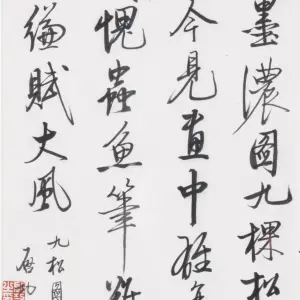 墨濃圖九棵松
今見畫中
愧蟲魚筆難
賦大風
九松圖
啟功